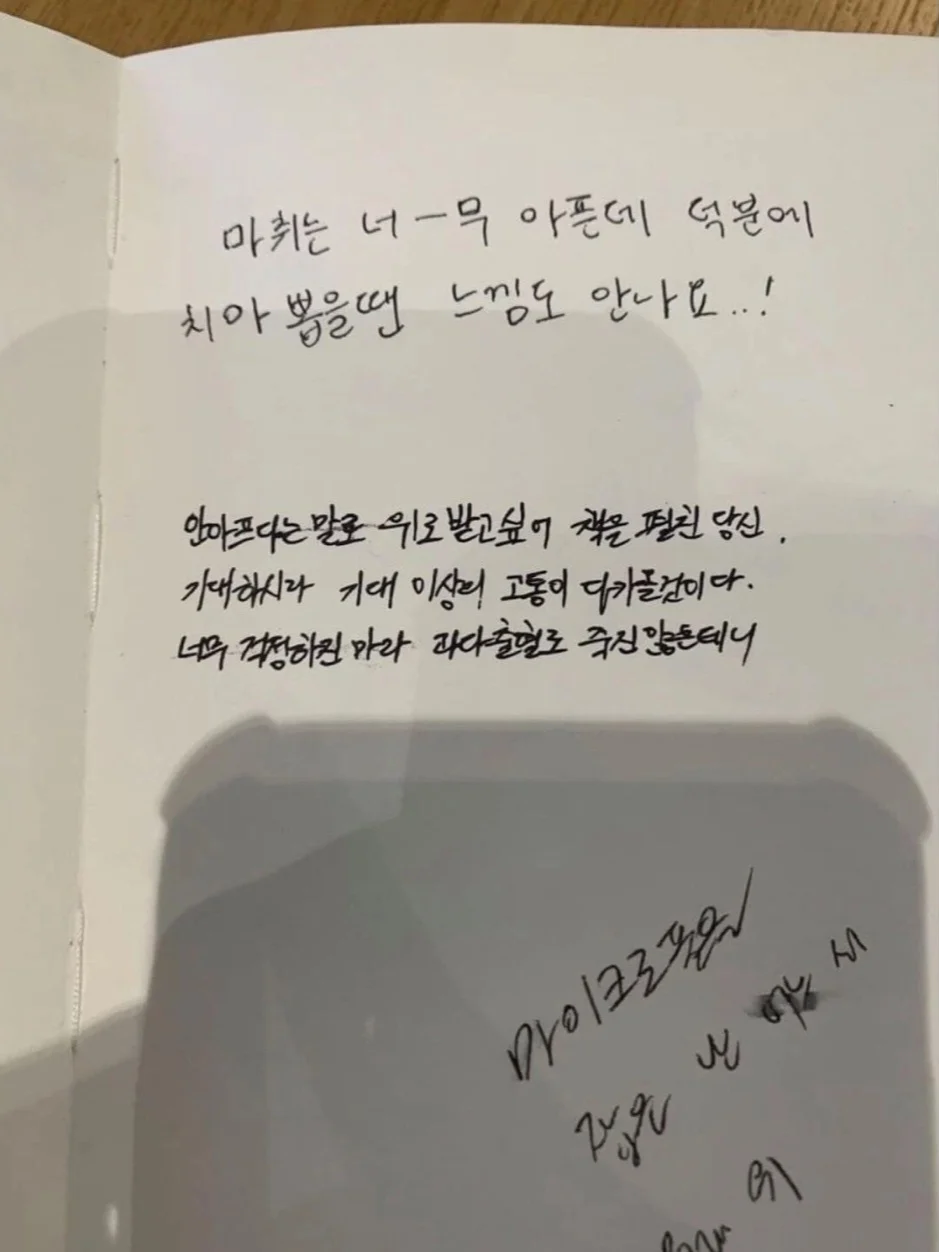 마취는 너ー무 아픈데 덕분에
치아 뽑을땐 느낌도 안나요..!
안아프다는 말로 위로 받고 싶어 책을 펼친 당신.
기대하시라 기대 이상의 고통이 다가올것이다.
너무 걱정하진 마라 과다출혈로 죽진 않을테니
마이크로폰을
잡은